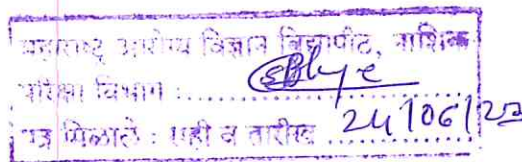 महाराष्ट्र आरोग्य विज्ञान विद्यापीठ, नाशिक
परीक्षा विभाग :
पत्र मिळाले : सही व तारीख 24/06/22